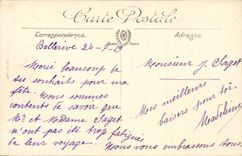 Carte Postale
Correspondance.
Adresse.
Bellerive 24-9-19
Merci beaucoup de
ses souhaits pour ma
fête. Nous sommes
contents de savoir que
Mr et Madame Saget
n'ont pas été trop fatigués
de leur voyage.
Nous vous embrassons tous
Monsieur J. Saget
Mes meilleurs
baisers pour toi.
Madeleine